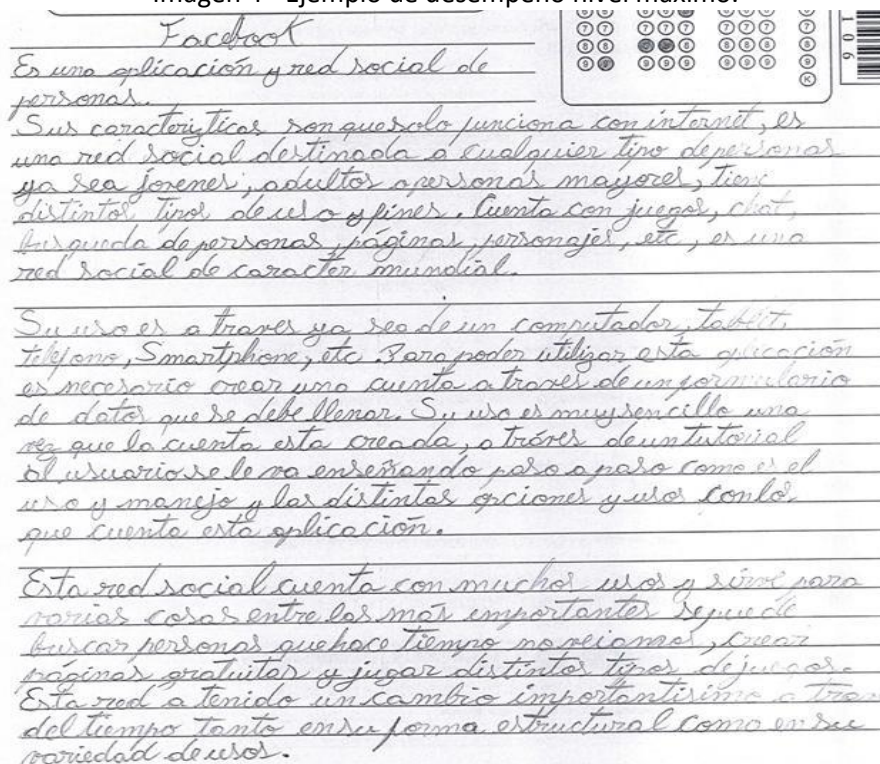 Imagen 4 - Ejemplo de desempeño nivel máximo.
Facebook
Es una aplicación y red social de
personas.
Sus caracterizticas son que solo funciona con internet, es
una red social destinada a cualquier tipo de personas
ya sea jovenes, adultos o personas mayores, tiene
distintos tipos de uso y fines. Cuenta con juegos, chat,
busqueda de personas, páginas, personajes, etc, es una
red social de caracter mundial.
Su uso es a traves ya sea de un computador, tablet,
telefono, Smartphone, etc Para poder utilizar esta aplicación
es necesario crear una cuenta a traves de un formulario
de datos que se debe llenar. Su uso es muy sencillo una
vez que la cuenta esta creada, a tráves de un tutorial
al usuario se le va enseñando paso a paso como es el
uso y manejo y las distintas opciones y usos con los
que cuenta esta aplicación.
Esta red social cuenta con muchos usos y sirve para
varias cosas entre las más importantes se puede
buscar personas que hace tiempo no veiamos, crear
páginas gratuitas y jugar distintos tipos de juegos.
Esta red a tenido un cambio importantisimo a trav
del tiempo tanto en su forma estructural como en su
variedad de usos.
106
7 7 7 7 7 7 7 7
8 8 8 8 8 8
9 9 9 9 9 9 9 9 9
K